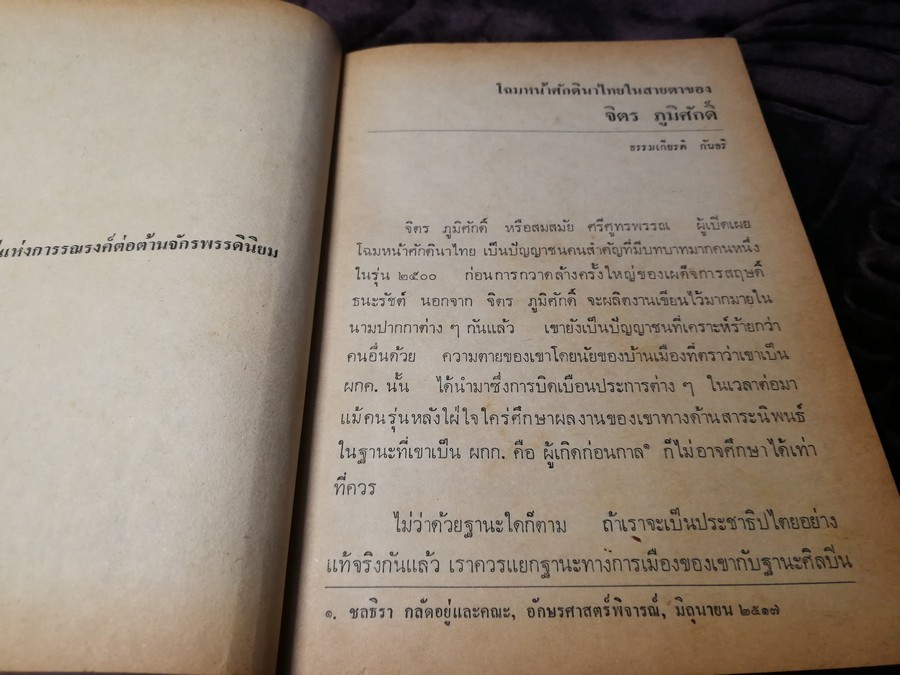 แห่งการรณรงค์ต่อต้านจักรพรรดินิยม
โฉมหน้าศักดินาไทยในสายตาของ
จิตร ภูมิศักดิ์
ธรรมเกียรติ กันอริ
จิตร ภูมิศักดิ์ หรือสมสมัย ศรีศูทรพรรณ ผู้เปิดเผย
โฉมหน้าศักดินาไทย เป็นปัญญาชนคนสำคัญที่มีบทบาทมากคนหนึ่ง
ในรุ่น ๒๕๐๐ ก่อนการกวาดล้างครั้งใหญ่ของเผด็จการสฤษดิ์
ธนะรัชต์ นอกจาก จิตร ภูมิศักดิ์ จะผลิตงานเขียนไว้มากมายใน
นามปากกาต่าง ๆ กันแล้ว เขายังเป็นปัญญาชนที่เคราะห์ร้ายกว่า
คนอื่นด้วย ความตายของเขาโดยนัยของบ้านเมืองที่ตราว่าเขาเป็น
ผกค. นั้น ได้นำมาซึ่งการบิดเบือนประการต่าง ๆ ในเวลาต่อมา
แม้คนรุ่นหลังใฝ่ใจใคร่ศึกษาผลงานของเขาทางด้านสาระนิพนธ์
ในฐานะที่เขาเป็น ผกก. คือ ผู้เกิดก่อนกาล๑ ก็ไม่อาจศึกษาได้เท่า
ที่ควร
ไม่ว่าด้วยฐานะใดก็ตาม ถ้าเราจะเป็นประชาธิปไตยอย่าง
แท้จริงกันแล้ว เราควรแยกฐานะทางการเมืองของเขากับฐานะศิลปิน
๑. ชลธิรา กลัดอยู่และคณะ, อักษรศาสตร์พิจารณ์, มิถุนายน ๒๕๑๗